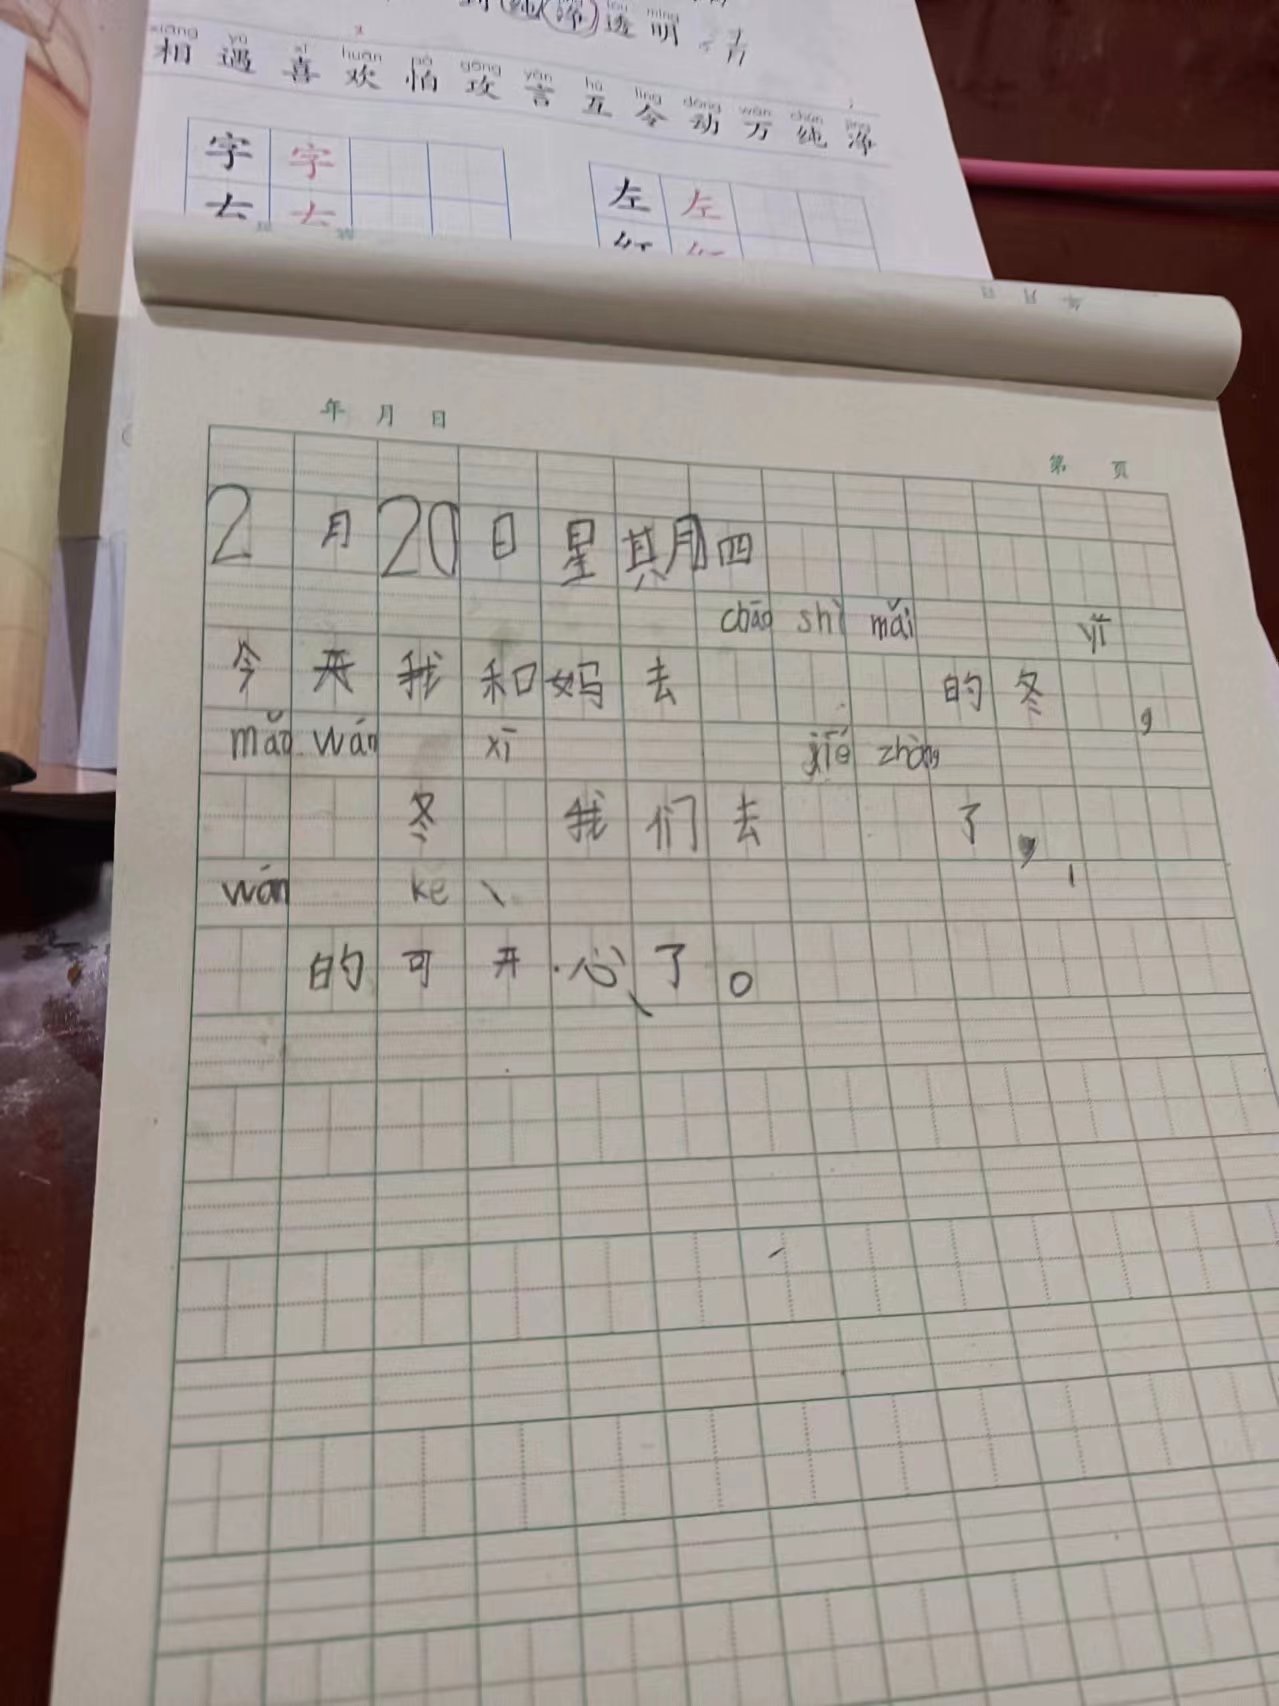 透明
xiāng yù xǐ huān pà gōng yán hù lìng dòng wàn chún jìng
相遇喜欢怕攻言互令动万纯净
字 字
左 左
年 月 日
第 页
2月20日星期四
chāo shì mǎi yī
今天我和妈去 的冬 ,
mǎo wán xī jié zhàng
冬 我们去 了,
wán kě
的可开心了。